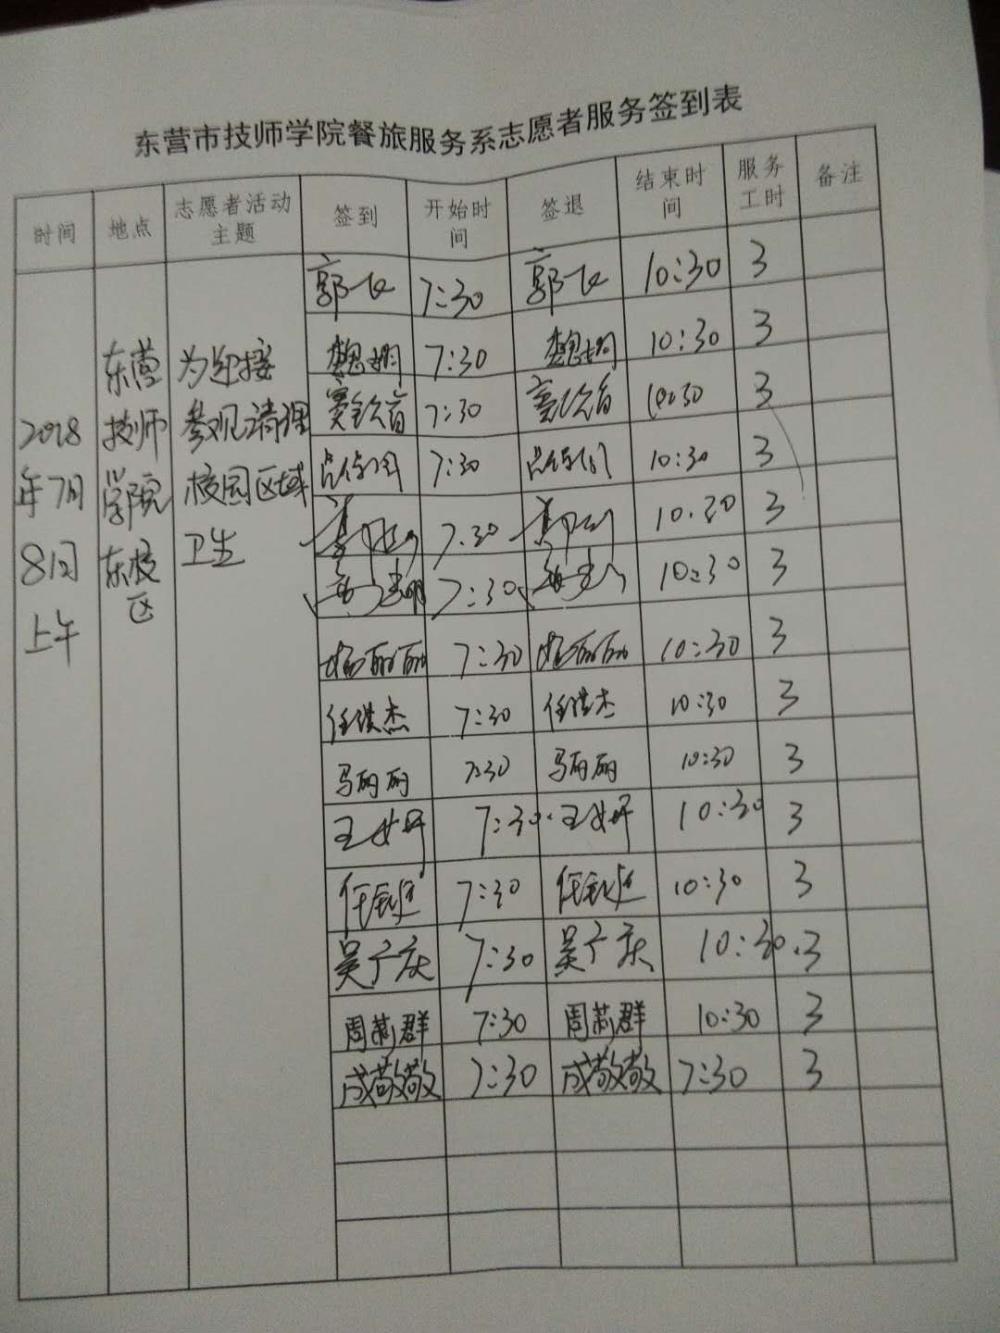 东营市技师学院餐旅服务系志愿者服务签到表
时间 地点 志愿者活动主题 签到 开始时间 签退 结束时间 服务工时 备注
2018年7月8日上午
东营技师学院东校区
为迎接参观清理校园区域卫生
郭飞 7:30 郭飞 10:30 3
7:30 10:30 3
7:30 10:30 3
7:30 10:30 3
7:30 10:30 3
7:30 10:30 3
丽丽 7:30 丽丽 10:30 3
任洪杰 7:30 任洪杰 10:30 3
马丽丽 7:30 马丽丽 10:30 3
王 7:30 王 10:30 3
任 7:30 任 10:30 3
吴广庆 7:30 吴广庆 10:30 3
周莉群 7:30 周莉群 10:30 3
成敬敬 7:30 成敬敬 7:30 3